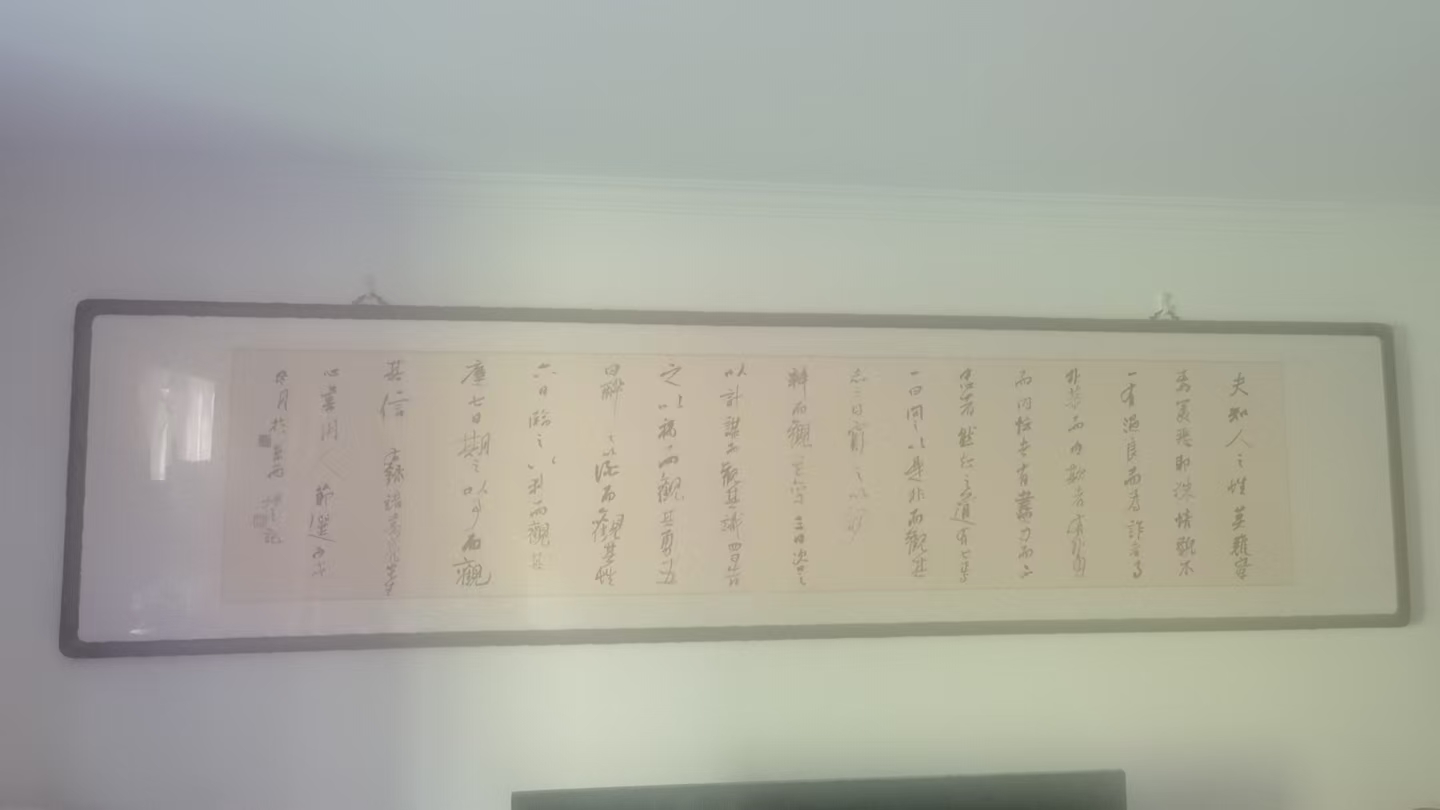 夫知人之性莫難察
焉美惡既殊情貌不
一有溫良而為詐者有
外恭而內欺者有外勇
而內怯者有盡力而不
忠者然知之道有七焉
一曰問之以是非而觀其
志二曰窮之以辭
辯而觀其變三曰咨之
以計謀而觀其識四曰告
之以禍而觀其勇五
曰醉之以酒而觀其性
六曰臨之以利而觀其
廉七曰期之以事而觀
其信 右録諸葛亮
心書 知人 節選
冬月於 記